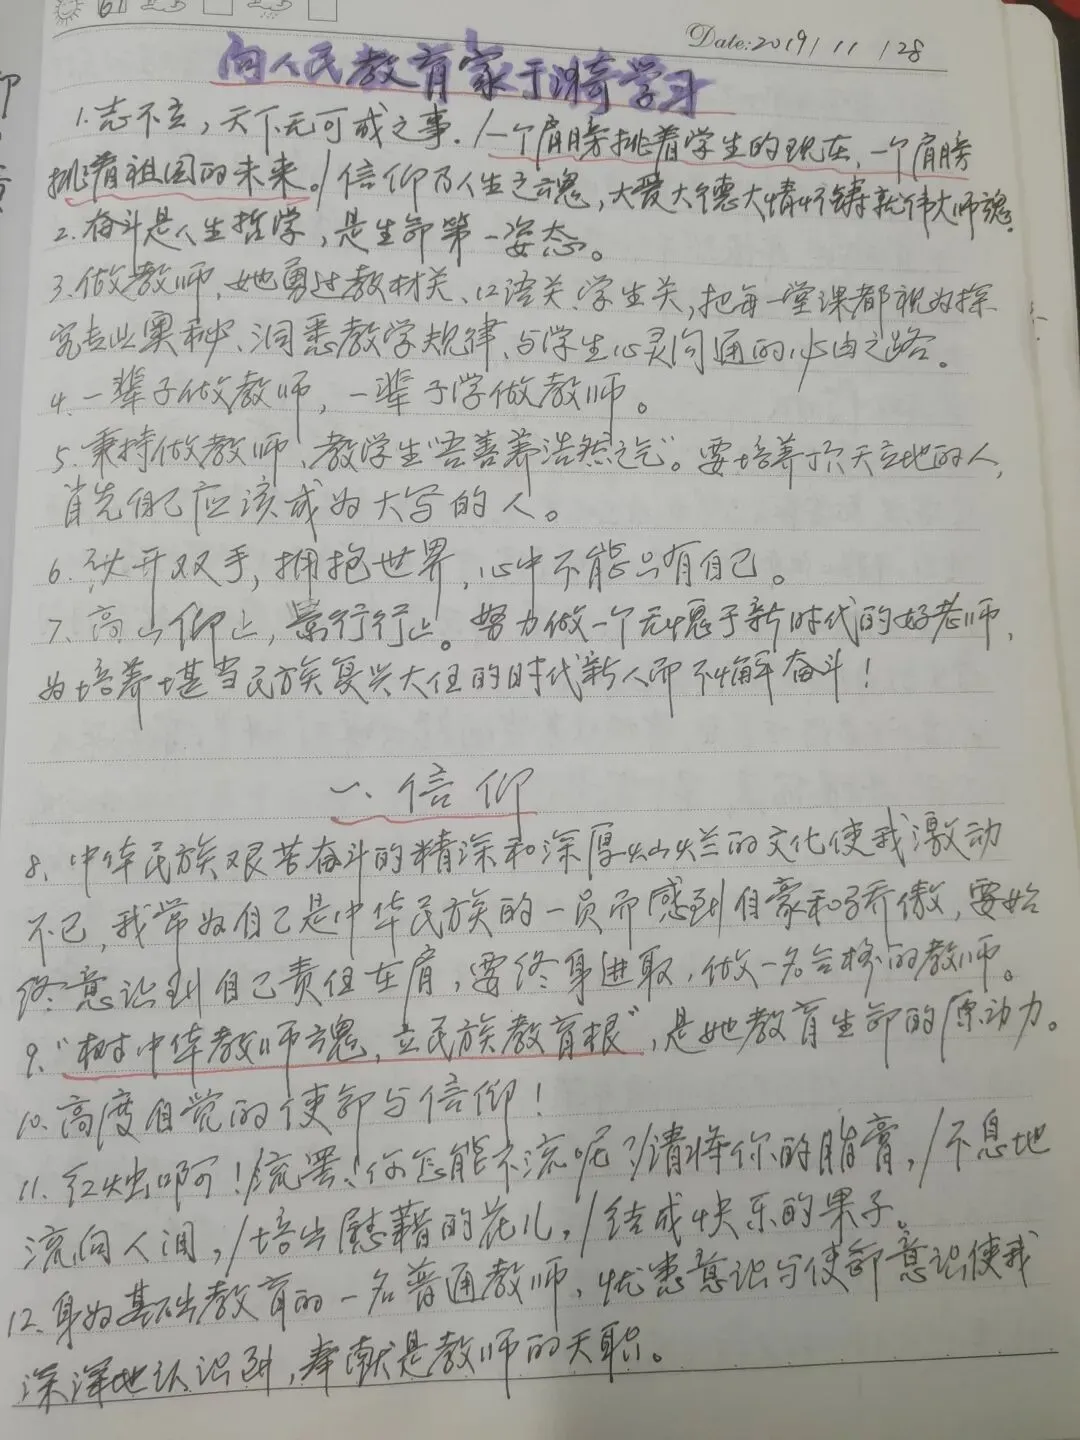 Date: 2019/11/28
向人民教育家于漪学习
1.志不立，天下无可成之事./一个肩膀挑着学生的现在,一个肩膀
挑着祖国的未来。/信仰乃人生之魂，大爱大德大情怀铸就伟大师魂。
2.奋斗是人生哲学，是生命第一姿态。
3.做教师,她勇过教材关、口语关、学生关,把每一堂课都视为探
究专业奥秘、洞悉教学规律、与学生心灵沟通的必由之路。
4.一辈子做教师，一辈子学做教师。
5.秉持做教师、教学生"吾善养浩然之气"。要培养顶天立地的人,
首先自己应该成为大写的人。
6.张开双手,拥抱世界,心中不能只有自己。
7、高山仰止,景行行止。努力做一个无愧于新时代的好老师,
为培养堪当民族复兴大任的时代新人而不懈奋斗!
一、信仰
8、中华民族艰苦奋斗的精深和深厚灿烂的文化使我激动
不已,我常为自己是中华民族的一员而感到自豪和骄傲,要始
终意识到自己责任在肩,要终身进取,做一名合格的教师。
9、"树中华教师魂,立民族教育根",是她教育生命的原动力。
10、高度自觉的使命与信仰!
11、红烛啊!/流罢!你怎能不流呢?/请将你的脂膏,/不息地
流向人间,/培出慰藉的花儿,/结成快乐的果子。
12、身为基础教育的一名普通教师、忧患意识与使命意识使我
深深地认识到,奉献是教师的天职。